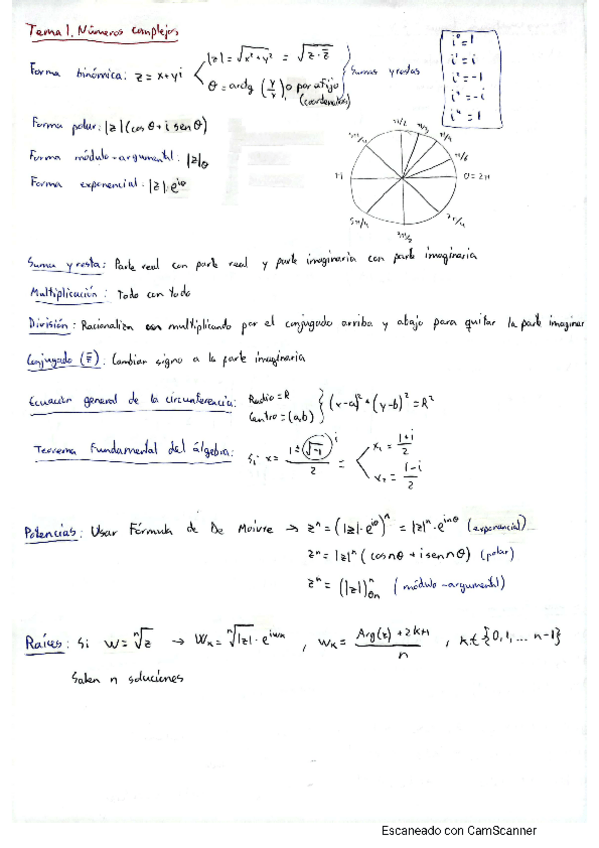 Tema 1. Números complejos
Forma binómica: z = x+yi
|z| = √(x²+y²) = √(z·z̄)
θ = arctg (y/x) o por afijo (coordenadas)
Sumas y restas
i⁰ = 1
i¹ = i
i² = -1
i³ = -i
i⁴ = 1
Forma polar: |z|(cosθ + i senθ)
Forma módulo-argumental: |z|θ
Forma exponencial: |z|·e^(iθ)
π/2
π/3
π/4
π/6
0=2π
π
5π/4
3π/2
7π/4
Suma y resta: Parte real con parte real y parte imaginaria con parte imaginaria
Multiplicación: Todo con todo
División: Racionalizar multiplicando por el conjugado arriba y abajo para quitar la parte imaginar
Conjugado (z̄): Cambiar signo a la parte imaginaria
Ecuación general de la circunferencia: Radio = R Centro = (a,b) } (x-a)² + (y-b)² = R²
Teorema fundamental del álgebra: Si x = (1±√-1)/2 = x₁ = (1+i)/2
i
x₂ = (1-i)/2
Potencias: Usar Fórmula de De Moivre → zⁿ = (|z|·e^(iθ))ⁿ = |z|ⁿ·e^(inθ) (exponencial)
zⁿ = |z|ⁿ (cos nθ + i sen nθ) (polar)
zⁿ = (|z|)ⁿθn (módulo-argumental)
Raíces: Si W = ⁿ√z → Wₖ = ⁿ√|z| · e^(iwₖ) , wₖ = (Arg(z) + 2kπ)/n , k ∈ {0,1,... n-1}
Salen n soluciones
Escaneado con CamScanner